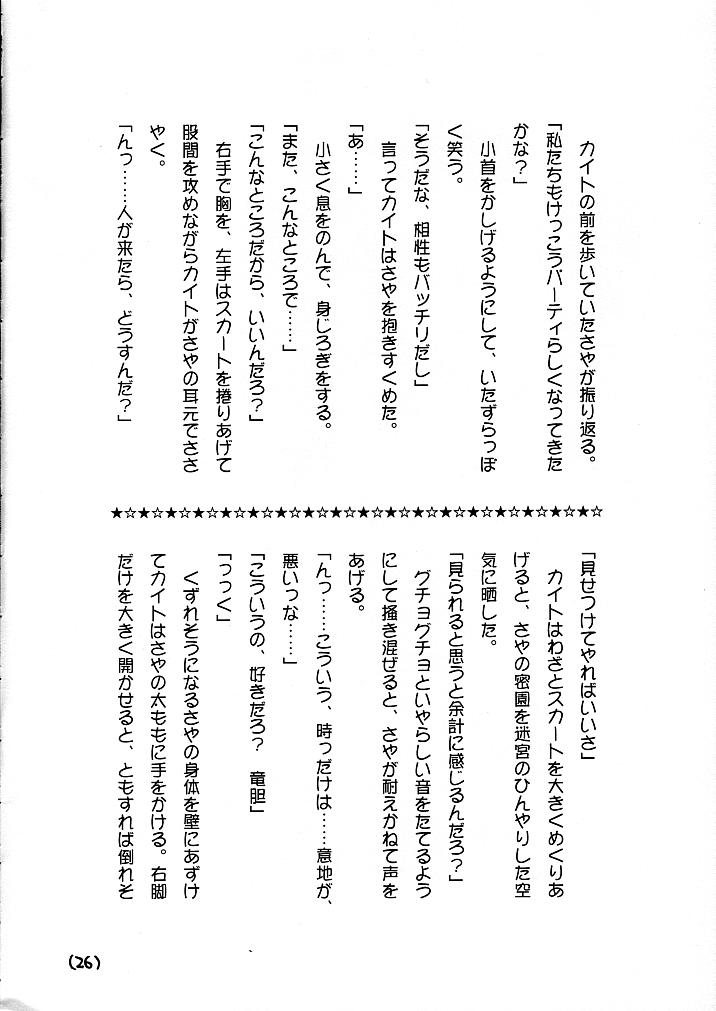 カイトの前を歩いていたさやが振り返る。
「私たちもけっこうパーティらしくなってきた
かな？」
小首をかしげるようにして、いたずらっぽ
く笑う。
「そうだな、相性もバッチリだし」
言ってカイトはさやを抱きすくめた。
「あ……」
小さく息をのんで、身じろぎをする。
「また、こんなところで……」
「こんなところだから、いいんだろ？」
右手で胸を、左手はスカートを捲りあげて
股間を攻めながらカイトがさやの耳元でささ
やく。
「んっ……人が来たら、どうすんだ？」
★☆★☆★☆★☆★☆★☆★☆★☆★☆★☆★☆★☆★☆★☆★☆★☆★☆★☆★☆
「見せつけてやればいいさ」
カイトはわざとスカートを大きくめくりあ
げると、さやの密園を迷宮のひんやりした空
気に晒した。
「見られると思うと余計に感じるんだろ？」
グチョグチョといやらしい音をたてるよう
にして掻き混ぜると、さやが耐えかねて声を
あげる。
「んっ……こういう、時っだけは……意地が、
悪いっな……」
「こういうの、好きだろ？　竜胆」
「っっく」
くずれそうになるさやの身体を壁にあずけ
てカイトはさやの太ももに手をかける。右脚
だけを大きく開かせると、ともすれば倒れそ
(26)